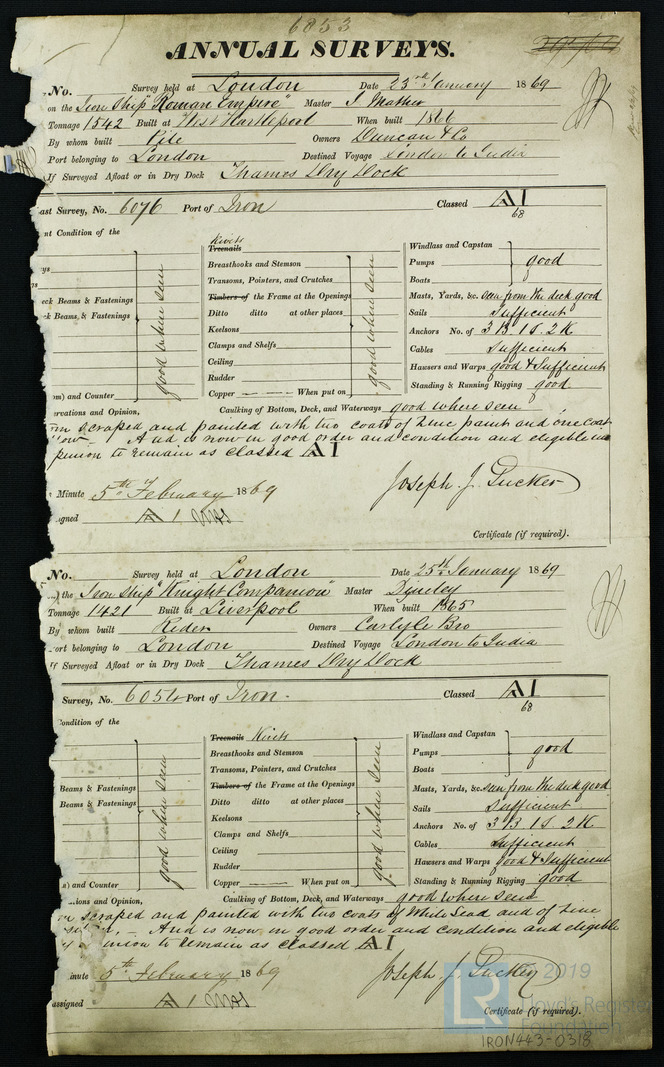 6053
ANNUAL SURVEYS.
No. Survey held at London Date 23rd January 1869
on the Iron Ship "Roman Empire" Master J. Mather
Tonnage 1542 Built at West Hartlepool When built 1866
By whom built Pile Owners Duncan & Co
Port belonging to London Destined Voyage London to India
If Surveyed Afloat or in Dry Dock Thames Dry Dock
ast Survey, No. 6076 Port of Iron Classed A1
68
nt Condition of the
Rivets
Treenails
Windlass and Capstan
Breasthooks and Stemson
Pumps good
Transoms, Pointers, and Crutches
Boats
ck Beams & Fastenings
Timbers of the Frame at the Openings
Masts, Yards, &c. seen from the deck good
ck Beams & Fastenings
Ditto ditto at other places
Sails Sufficient
good where seen
Keelsons
good where seen
Anchors No. of 3 B. 1 S. 2 K
Clamps and Shelfs
Cables Sufficient
Ceiling
Hawsers and Warps good & Sufficient
Rudder
Standing & Running Rigging good
m) and Counter
Copper When put on
Caulking of Bottom, Deck, and Waterways good where seen
ervations and Opinion,
scraped and painted with two coats of Zinc paint and one coat
And is now in good order and condition and eligible in
pinion to remain as classed A1
Minute 5th February 1869
Joseph J. Tucker
signed A 1
Certificate (if required).
No. Survey held at London Date 25th January 1869
the Iron Ship "Knight Companion" Master
Tonnage 1421 Built at Liverpool When built 1865
By whom built Reden Owners Carlyle Bro
ort belonging to London Destined Voyage London to India
If Surveyed Afloat or in Dry Dock Thames Dry Dock
Survey, No. 6054 Port of Iron. Classed A1
68
Condition of the
Treenails Rivets
Windlass and Capstan
Breasthooks and Stemson
Pumps good
Transoms, Pointers, and Crutches
Boats
Beams & Fastenings
Timbers of the Frame at the Openings
Masts, Yards, &c. seen from the deck good
Beams & Fastenings
Ditto ditto at other places
Sails Sufficient
good where seen
Keelsons
good where seen
Anchors No. of 3 B 1 S. 2 K
Clamps and Shelfs
Cables Sufficient
Ceiling
Hawsers and Warps good & Sufficient
Rudder
Standing & Running Rigging good
) and Counter
Copper When put on
Caulking of Bottom, Deck, and Waterways good where seen
ions and Opinion,
scraped and painted with two coats of White Lead and of Zinc
And is now in good order and condition and eligible
inion to remain as classed A1
inute 5th February 1869
Joseph J Tucker
assigned A 1
Certificate (if required).
LR
© 2019
Lloyd's Register
Foundation
IRON443-0318